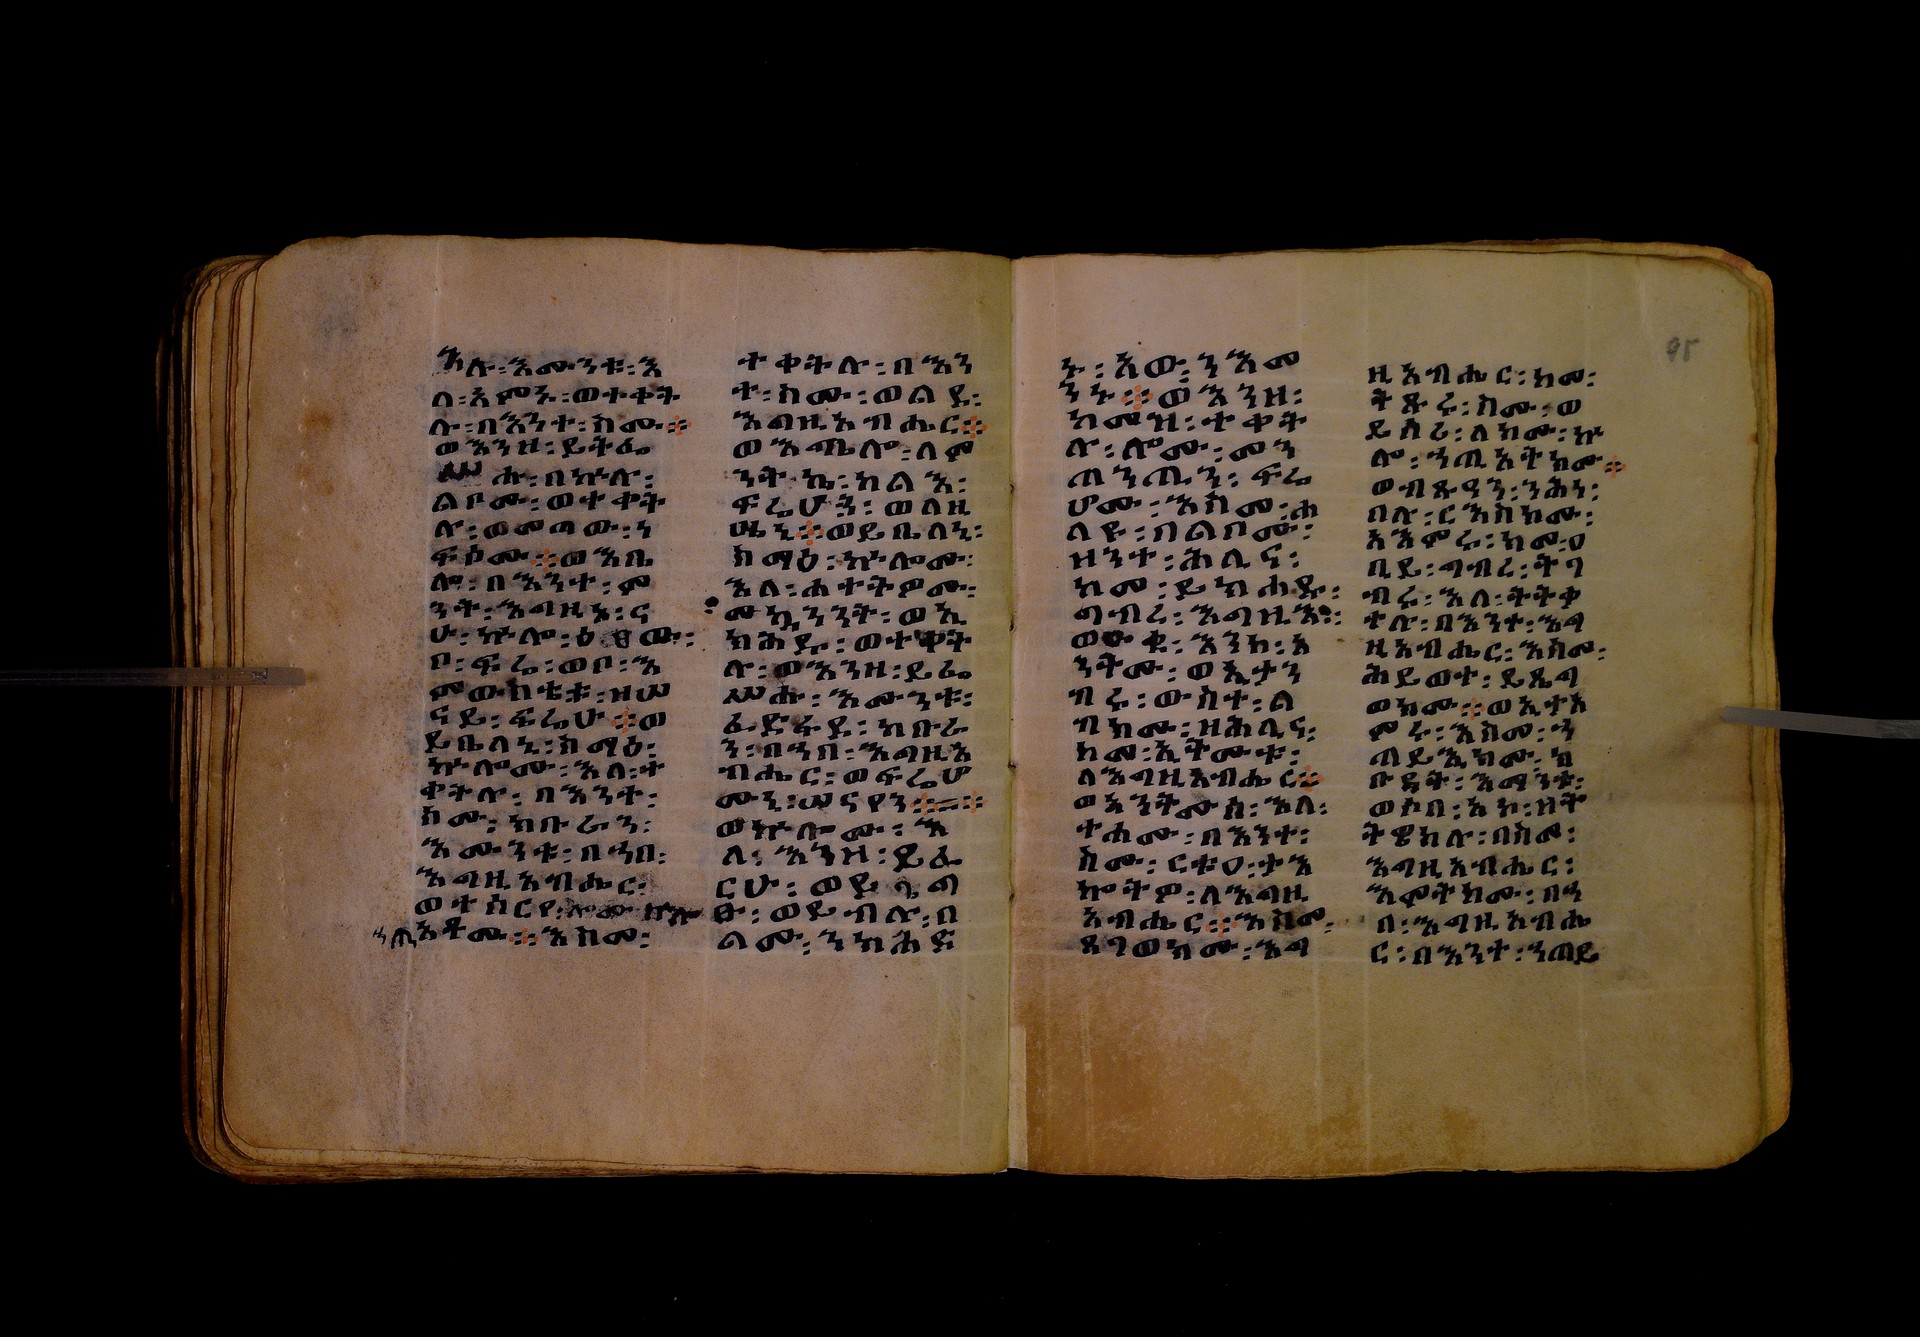 ኵሉ፡እሙንቱ፡እ
ለ፡አምኑ፡ወተቀት
ሉ፡በእንተ፡ስሙ፨
ወእንዘ፡ይትፌ
ሥሑ፡በኵሉ፡
ልቦሙ፡ወተቀት
ሉ፡ወመጠው፡ነ
ፍሶሙ፨ወእቤ
ሎ፡በእንተ፡ም
ንት፡እግዚኦ፡ና
ሁ፡ኵሎ፡ዕፀው፡
ቦ፡ፍሬ፡ወቦ፡እ
ምውስቴቱ፡ዘሠ
ናይ፡ፍሬሁ፨ወ
ይቤለኒ፡ስማዕ፡
ኵሎሙ፡እለ፡ተ
ቀትሉ፡በእንተ፡
ስሙ፡ክቡራን፡
እሙንቱ፡በኀበ፡
እግዚአብሔር፡
ወተስርየ፡ሎሙ፡ኵሉ
ኀጢአቶሙ፨እስመ፡
ተቀትሉ፡በእን
ተ፡ስሙ፡ወልደ፡
እግዚአብሔር፨
ወእቤሎ፡ለም
ንት፡ኬ፡ክልእ፡
ፍሬሆን፡ወለዘ
ዜነ፨ወይቤለኒ፡
ስማዕ፡ኵሎሙ፡
እለ፡ሐተትዎሙ፡
መኳንንት፡ወኢ
ክሕዱ፡ወተቀት
ሉ፡ወእንዘ፡ይፌ
ሥሑ፡እሙንቱ፡
ፈድፋደ፡ክቡራ
ን፡በኀበ፡እግዚአ
ብሔር፡ወፍሬሆ
ሙኒ፡ሠናየን፨
ወኵሎሙ፡እ
ለ፡እንዘ፡ይፈ
ርሁ፡ወይኔግ
ፁ፡ወይብሉ፡በ
ልሙ፡ንክሕድ
ኑ፡አው፡ንእመ
ንኑ፨ወእንዘ፡
ከመዝ፡ተቀት
ሉ፡ሎሙ፡መን
ጠንጢን፡ፍሬ
ሆሙ፡እስመ፡ሐ
ለየ፡በልቦሙ፡
ዘንተ፡ሕሊና፡
ከመ፡ይክሐድ፡
ግብረ፡እግዚኡ፡
ወዑቁ፡እንከ፡አ
ንትሙ፡ወኢታን
ብሩ፡ውስተ፡ል
ብክሙ፡ዘሕሊና፡
ከመ፡ኢትሙቱ፡
ለእግዚአብሔር፨
ወአንትሙሰ፡እለ፡
ተሐሙ፡በእንተ፡
ስሙ፡ርቱዕ፡ታእ
ኰትዎ፡ለእግዚ
አብሔር፨እስመ፡
ጸገወክሙ፡እግ
ዚአብሔር፡ከመ፡
ትጹሩ፡ስሙ፡ወ
ይሰረይ፡ለክሙ፡ኵ
ሎ፡ኀጢአትክሙ፨
ወብፁዓን፡ንሕነ፡
በሉ፡ርእስክሙ፡
አእምሩ፡ከመ፡ዐ
ቢይ፡ግብረ፡ትገ
ብሩ፡እለ፡ትትቀ
ተሉ፡በእንተ፡እግ
ዚአብሔር፡እስመ፡
ሕይወተ፡ይጼግ
ወክሙ፨ወኢተአ
ምሩ፡እስመ፡ኀ
ጣይኢክሙ፡ክ
ቡዳት፡እማንቱ፡
ወሶበ፡አኮ፡ዘት
ትቄተሉ፡በስመ፡
እግዚአብሔር፡
እሞትክሙ፡በኀ
በ፡እግዚአብሔ
ር፡በእንተ፡ኀጣይ
95